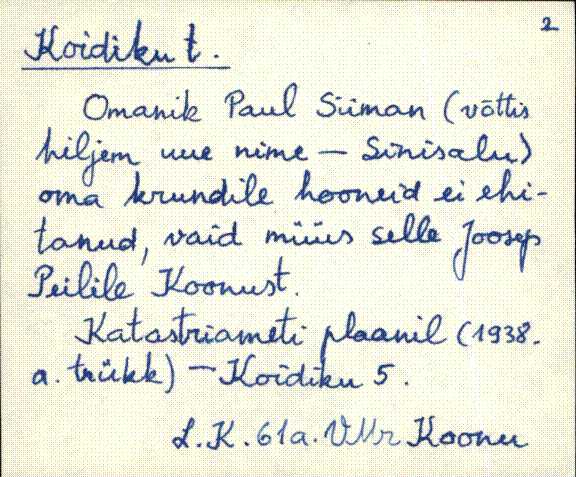 2
Koidiku t.
Omanik Paul Siiman (võttis
hiljem uue nime – Sinisalu)
oma krundile hooneid ei ehi-
tanud, vaid müüs selle Joosep
Peilile Koonust.
Katastriameti plaanil (1938.
a. trükk) – Koidiku 5.
L.K. 61a. VMr Koonu